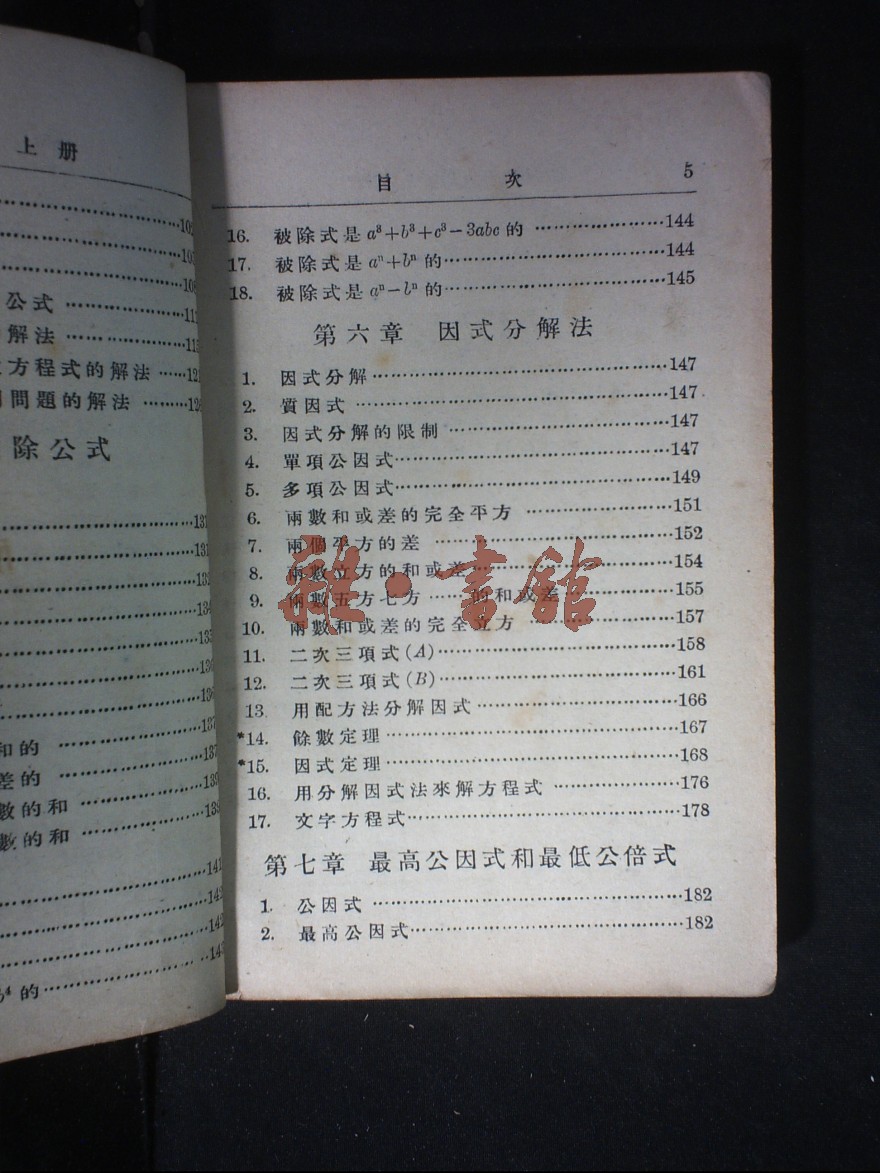 上册
公式 ……
解法 ……
方程式的解法 ……
問題的解法 ……
除公式
和的 ……
差的 ……
數的和 ……
數的和 ……
的 ……
目 次 5
16. 被除式是 a³+b³+c³−3abc 的 ……144
17. 被除式是 aⁿ+bⁿ 的……144
18. 被除式是 aⁿ−bⁿ 的……145
第六章 因式分解法
1. 因式分解……147
2. 質因式……147
3. 因式分解的限制……147
4. 單項公因式……147
5. 多項公因式……149
6. 兩數和或差的完全平方……151
7. 兩個平方的差……152
8. 兩數立方的和或差……154
9. 兩數五方七方……的和或差……155
10. 兩數和或差的完全立方……157
11. 二次三項式(A)……158
12. 二次三項式(B)……161
13. 用配方法分解因式……166
*14. 餘數定理……167
*15. 因式定理……168
16. 用分解因式法來解方程式……176
17. 文字方程式……178
第七章 最高公因式和最低公倍式
1. 公因式……182
2. 最高公因式……182
雜·書館